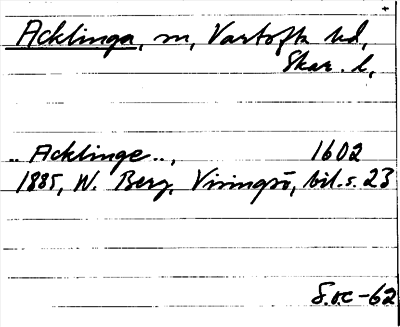 Acklinga, sn, Vartofta hd,
Skar. l,
.. Acklinge ..,  1602
1885, W. Berg, Visingsö, bil. s. 23